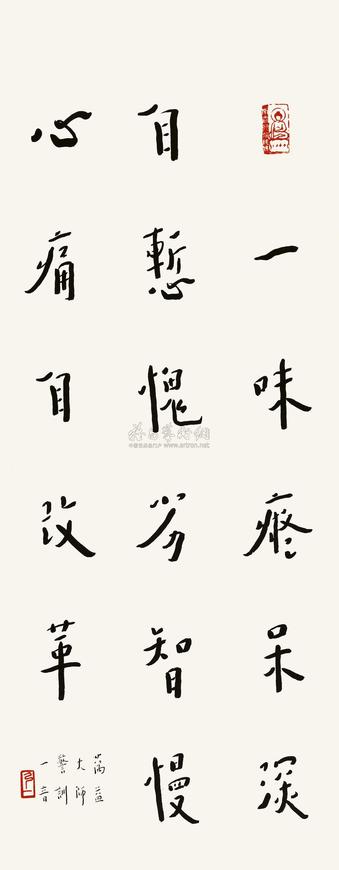 一味癡呆深
自慙愧劣智慢
心痛自改革
蕅益
大師
警訓
一音
www.artron.net